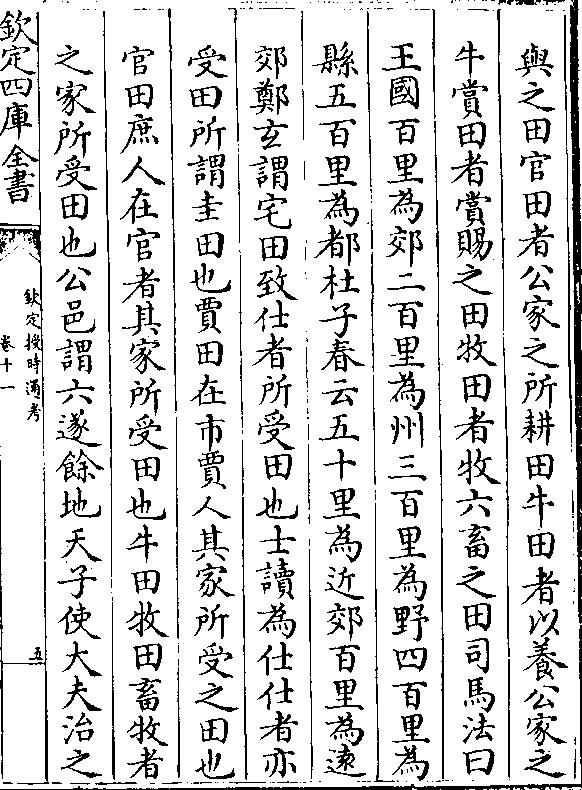 與之田官田者公家之所耕田牛田者以養公家之
牛賞田者賞賜之田牧田者牧六畜之田司馬法曰
王國百里為郊二百里為州三百里為野四百里為
縣五百里為都杜子春云五十里為近郊百里為遠
郊鄭玄謂宅田致仕者所受田也士讀為仕仕者亦
受田所謂圭田也賈田在市賈人其家所受之田也
官田庶人在官者其家所受田也牛田牧田畜牧者
之家所受田也公邑謂六遂餘地天子使大夫治之
欽定四庫全書
欽定授時通考
卷十一
五